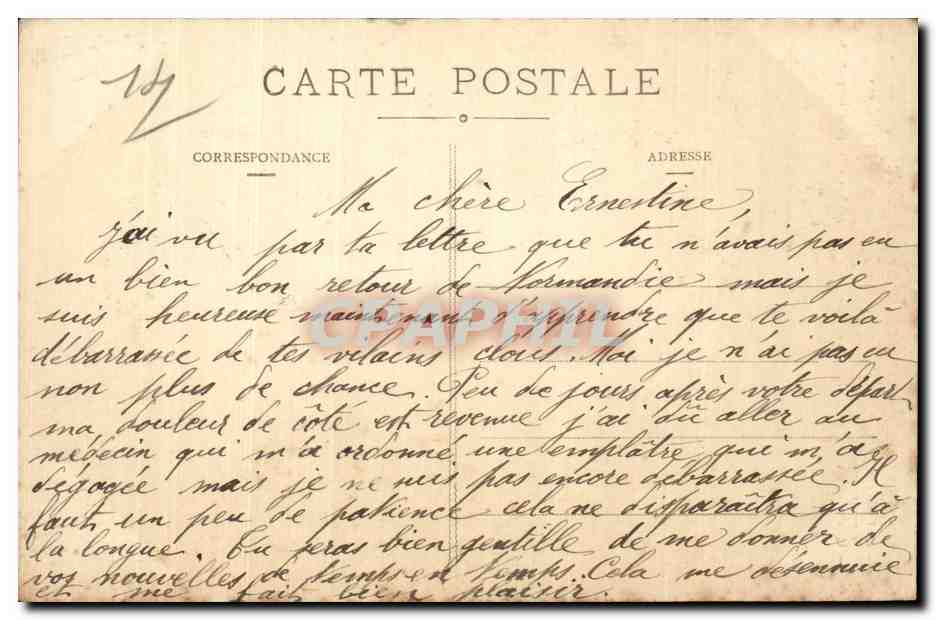 14
CARTE POSTALE
CORRESPONDANCE
ADRESSE
Ma chère Ernestine,
J'ai vu par ta lettre que tu n'avais pas eu
un bien bon retour de Normandie mais je
suis heureuse maintenant d'apprendre que te voilà
débarrassée de tes vilains clous. Moi je n'ai pas eu
non plus de chance. Peu de jours après votre départ
ma douleur de côté est revenue j'ai dû aller au
médecin qui m'a ordonné une emplâtre qui m'a
dégagée mais je ne suis pas encore débarrassée. Il
faut un peu de patience cela ne disparaîtra qu'à
la longue. Tu seras bien gentille de me donner de
vos nouvelles de temps en temps. Cela me désennuie
et me fait bien plaisir.
CPAPHIL